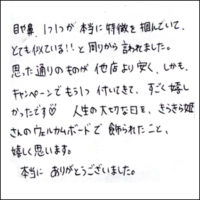 目や鼻 1つ1つが本当に特徴を掴んでいて、
とても似ている!!と周りから言われました。
思った通りのものが他店より安く、しかも、
キャンペーンでもう1つ付いてきて、すごく嬉し
かったです♡ 人生の大切な日を、きらきら姫
さんのウェルカムボードで飾られたこと、
嬉しく思います。
本当にありがとうございました。